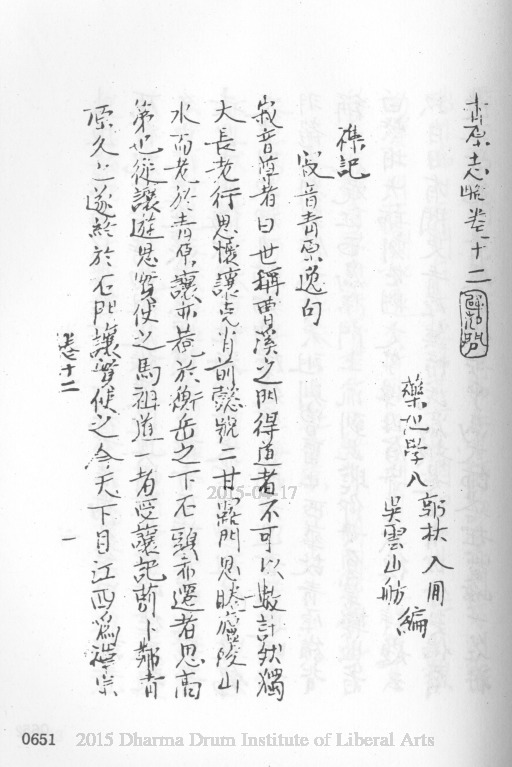 青原志略卷十二
藥地學人郭林入開
吳雲山舫編
襍記
寂音青原逸句
寂音尊者曰世稱曹溪之門得道者不可以數計然獨
大長老行思懷讓先肖前懿號二甘露門思眺廬陵山
水而老於青原讓亦菴於衡岳之下石頭希遷者思高
弟也從讓遊思實使之馬祖道一者受讓記莂卜鄰青
原久之遂終於石門讓實使之今天下目江西爲禪宗
卷十二 一
2015-04-17
0651 2015 Dharma Drum Institute of Liberal Arts